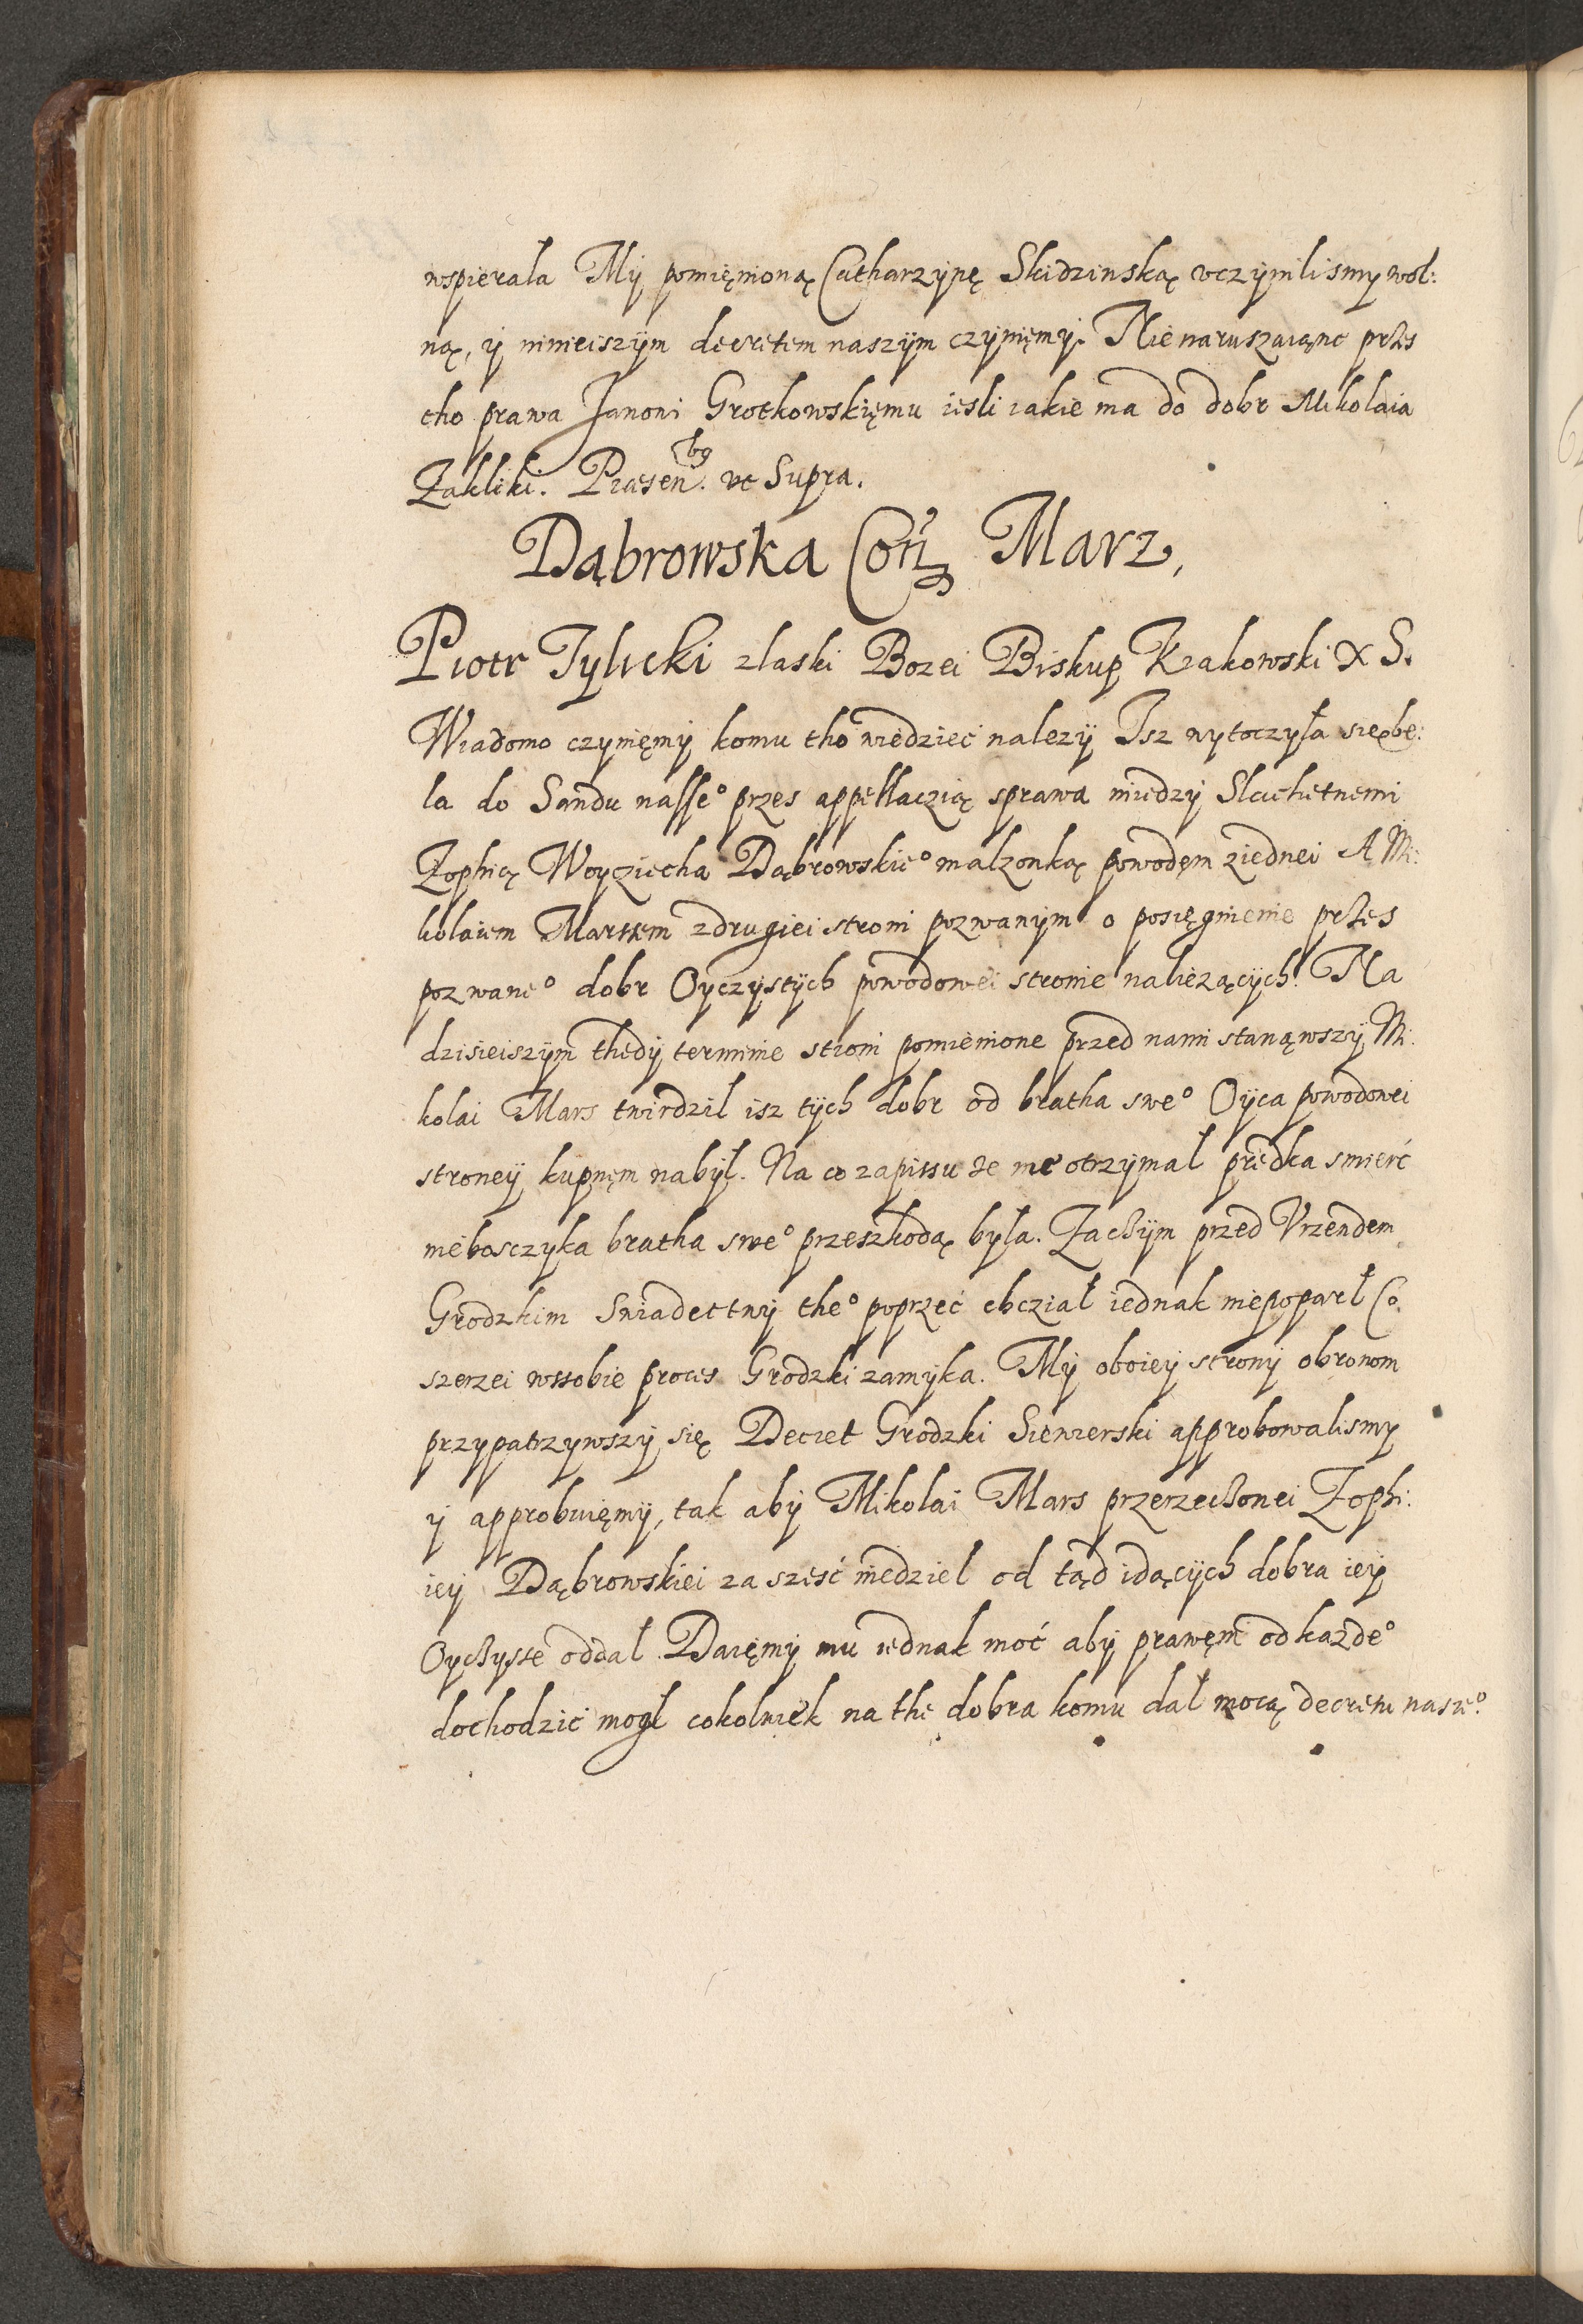 wspierala Mÿ pomięnioną Catharzynę Skidzinską vczÿnilismy wol:
ną, ÿ ninieiszÿm decretem naszÿm czÿnięmÿ. Nie naruszaiąnc przes
tho prawa Janoni Grotkowskięmu iesli iakie ma do dobr Mikolaia
Zakliki. Præsen.bg vt Supra.
Dąbrowska Coñ Marz,
Piotr Tylicki z laski Bozei Biskup Krakowski X S.
Wiadomo czynięmÿ komu tho wiedzieć nalezÿ Isz wytoczyła się be:
la do Sandu nasseº przes appellaczią sprawa miedzy Slachetnemi
Zophią Woyciecha Dąbrowskieº malzonką powodęm z iednei A Mi:
kolaiem Marsem z drugiei stroni pozwanÿm o posięgnienie przes
pozwaneº dobr Oyczÿstÿch powodowei stronie należącÿch. Na
dzisieiszÿm thedÿ terminie stroni pomienione przed nami stanąwszÿ Mi:
kolai Mars twirdzil isz tÿch dobr od bratha sweº Oÿca powodowei
stroneÿ kupnęm nabÿl. Na co zapissu że nie otrzÿmal prędka smierć
niebosczÿka bratha sweº przeszkodą bÿla. Zaczÿm przed Vrzendem
Grodzkim Swiadectwÿ theº poprzeć chcział iednak niepoparł Co
szerzei w ssobie proces Grodzki zamÿka. Mÿ oboieÿ stronÿ obronom
przÿpatrzÿwszÿ się Decret Grodzki Siewierski approbowalismy
ÿ approbuięmÿ, tak abÿ Mikolai Mars przerzeczonei Zophi:
ieÿ Dąbrowskiei za sześć niedziel od tąd idącÿch dobra ieÿ
Oyczyste oddał. Daięmÿ mu iednak moć abÿ prawęm od kazdeº
dochodzić mogł cokolwiek na the dobra komu dał mocą decretu naszeº.